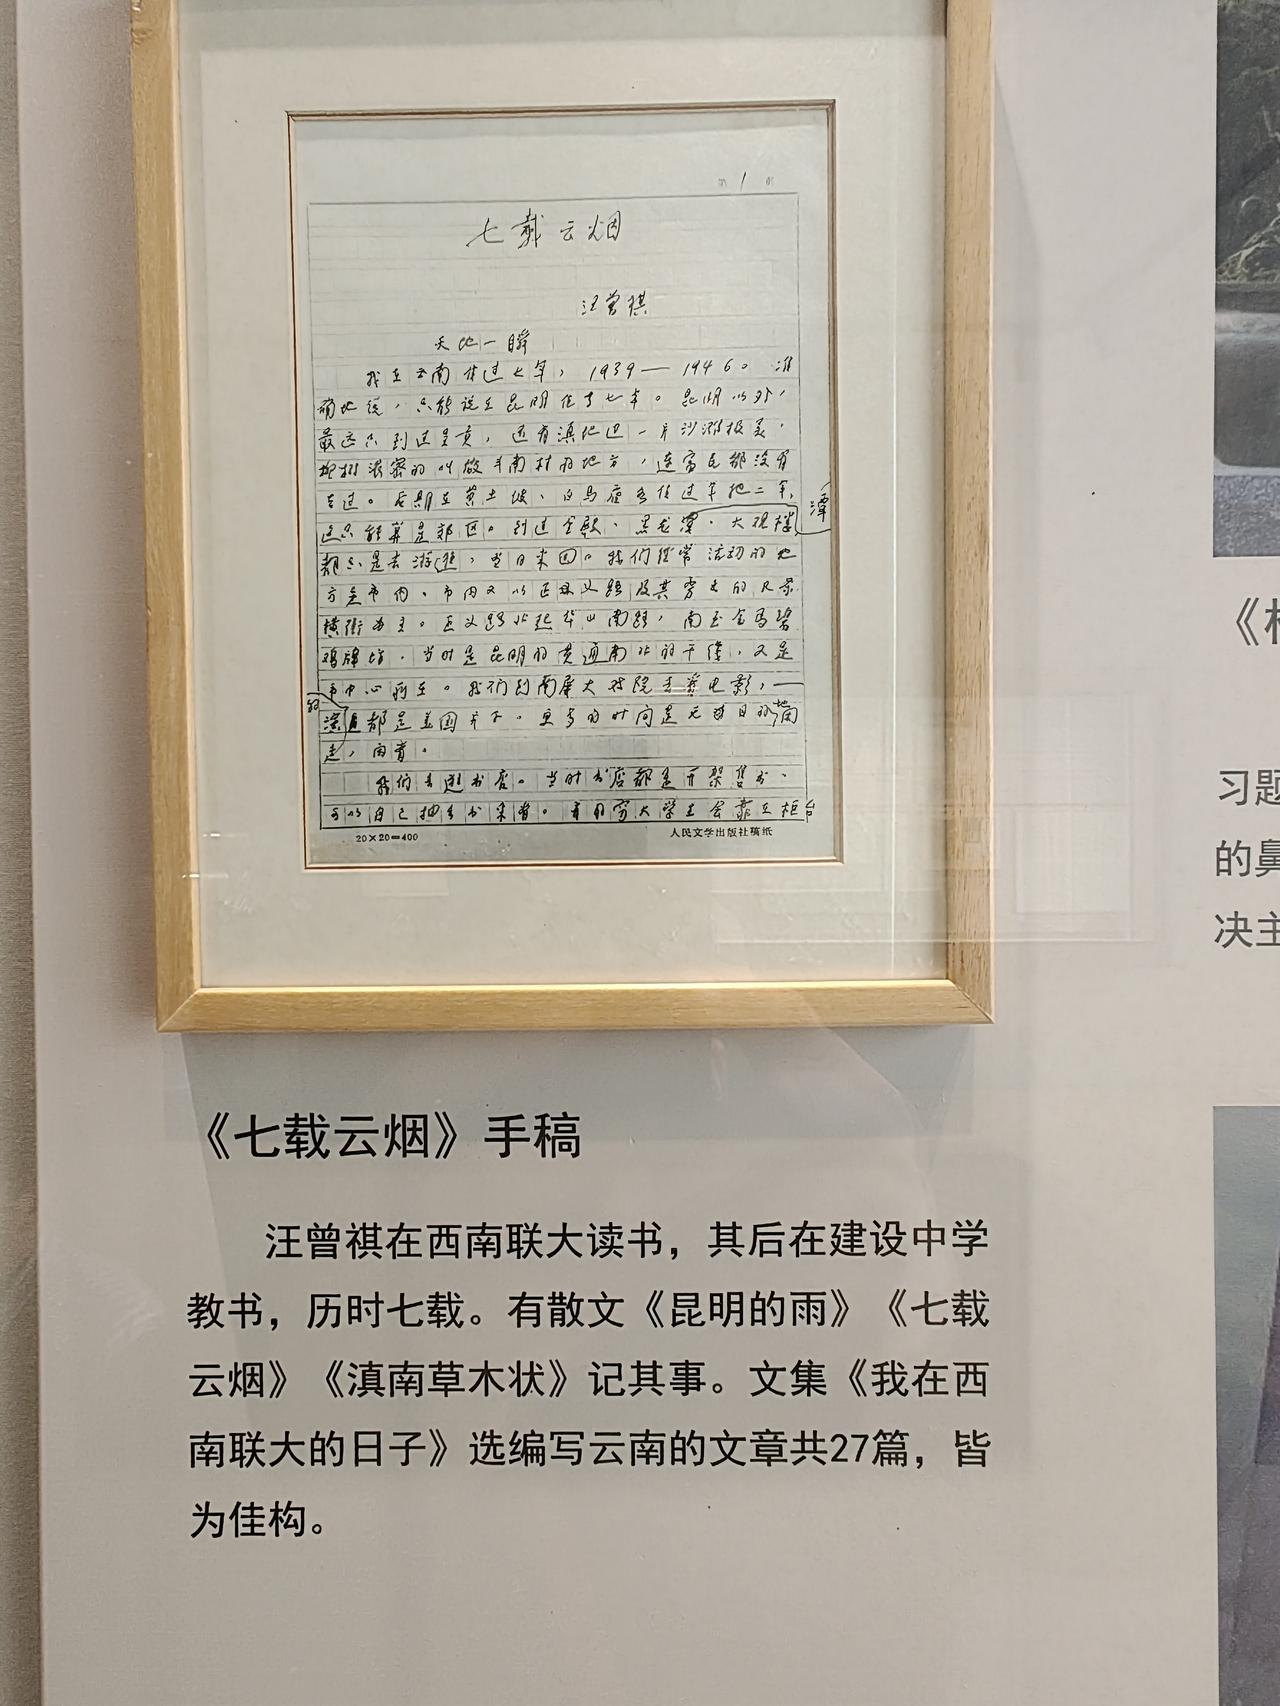 第 1 页
七载云烟
汪曾祺
天地一瞬
我在云南住过七年，1939—1946。准
确地说，只能说在昆明住了七年。昆明以外，
最远只到过呈贡，还有滇池边一片沙滩极美，
柳树浓密的叫做斗南村的地方，连富民都没有
去过。后期在黄土坡、白马庙各住过年把二年，
这只能算是郊区。到过金殿、黑龙潭、大观楼，
潭
都只是去游逛，当日来回。我们经常活动的地
方是市内。市内又以正义路及其旁出的几条
横街为主。正义路北起华山南路，南至金马碧
鸡牌坊，当时是昆明的贯通南北的干线，又是
市中心所在。我们到南屏大戏院去看电影，——
演的都是美国片子。更多的时间是无目的地闲
走，闲看。
我们去逛书店。当时书店都是开架售书，
可以自己抽出书来看。有的穷大学生会靠在柜台
20×20=400
人民文学出版社稿纸
《七载云烟》手稿
汪曾祺在西南联大读书，其后在建设中学
教书，历时七载。有散文《昆明的雨》《七载
云烟》《滇南草木状》记其事。文集《我在西
南联大的日子》选编写云南的文章共27篇，皆
为佳构。
习题
的鼻
决主